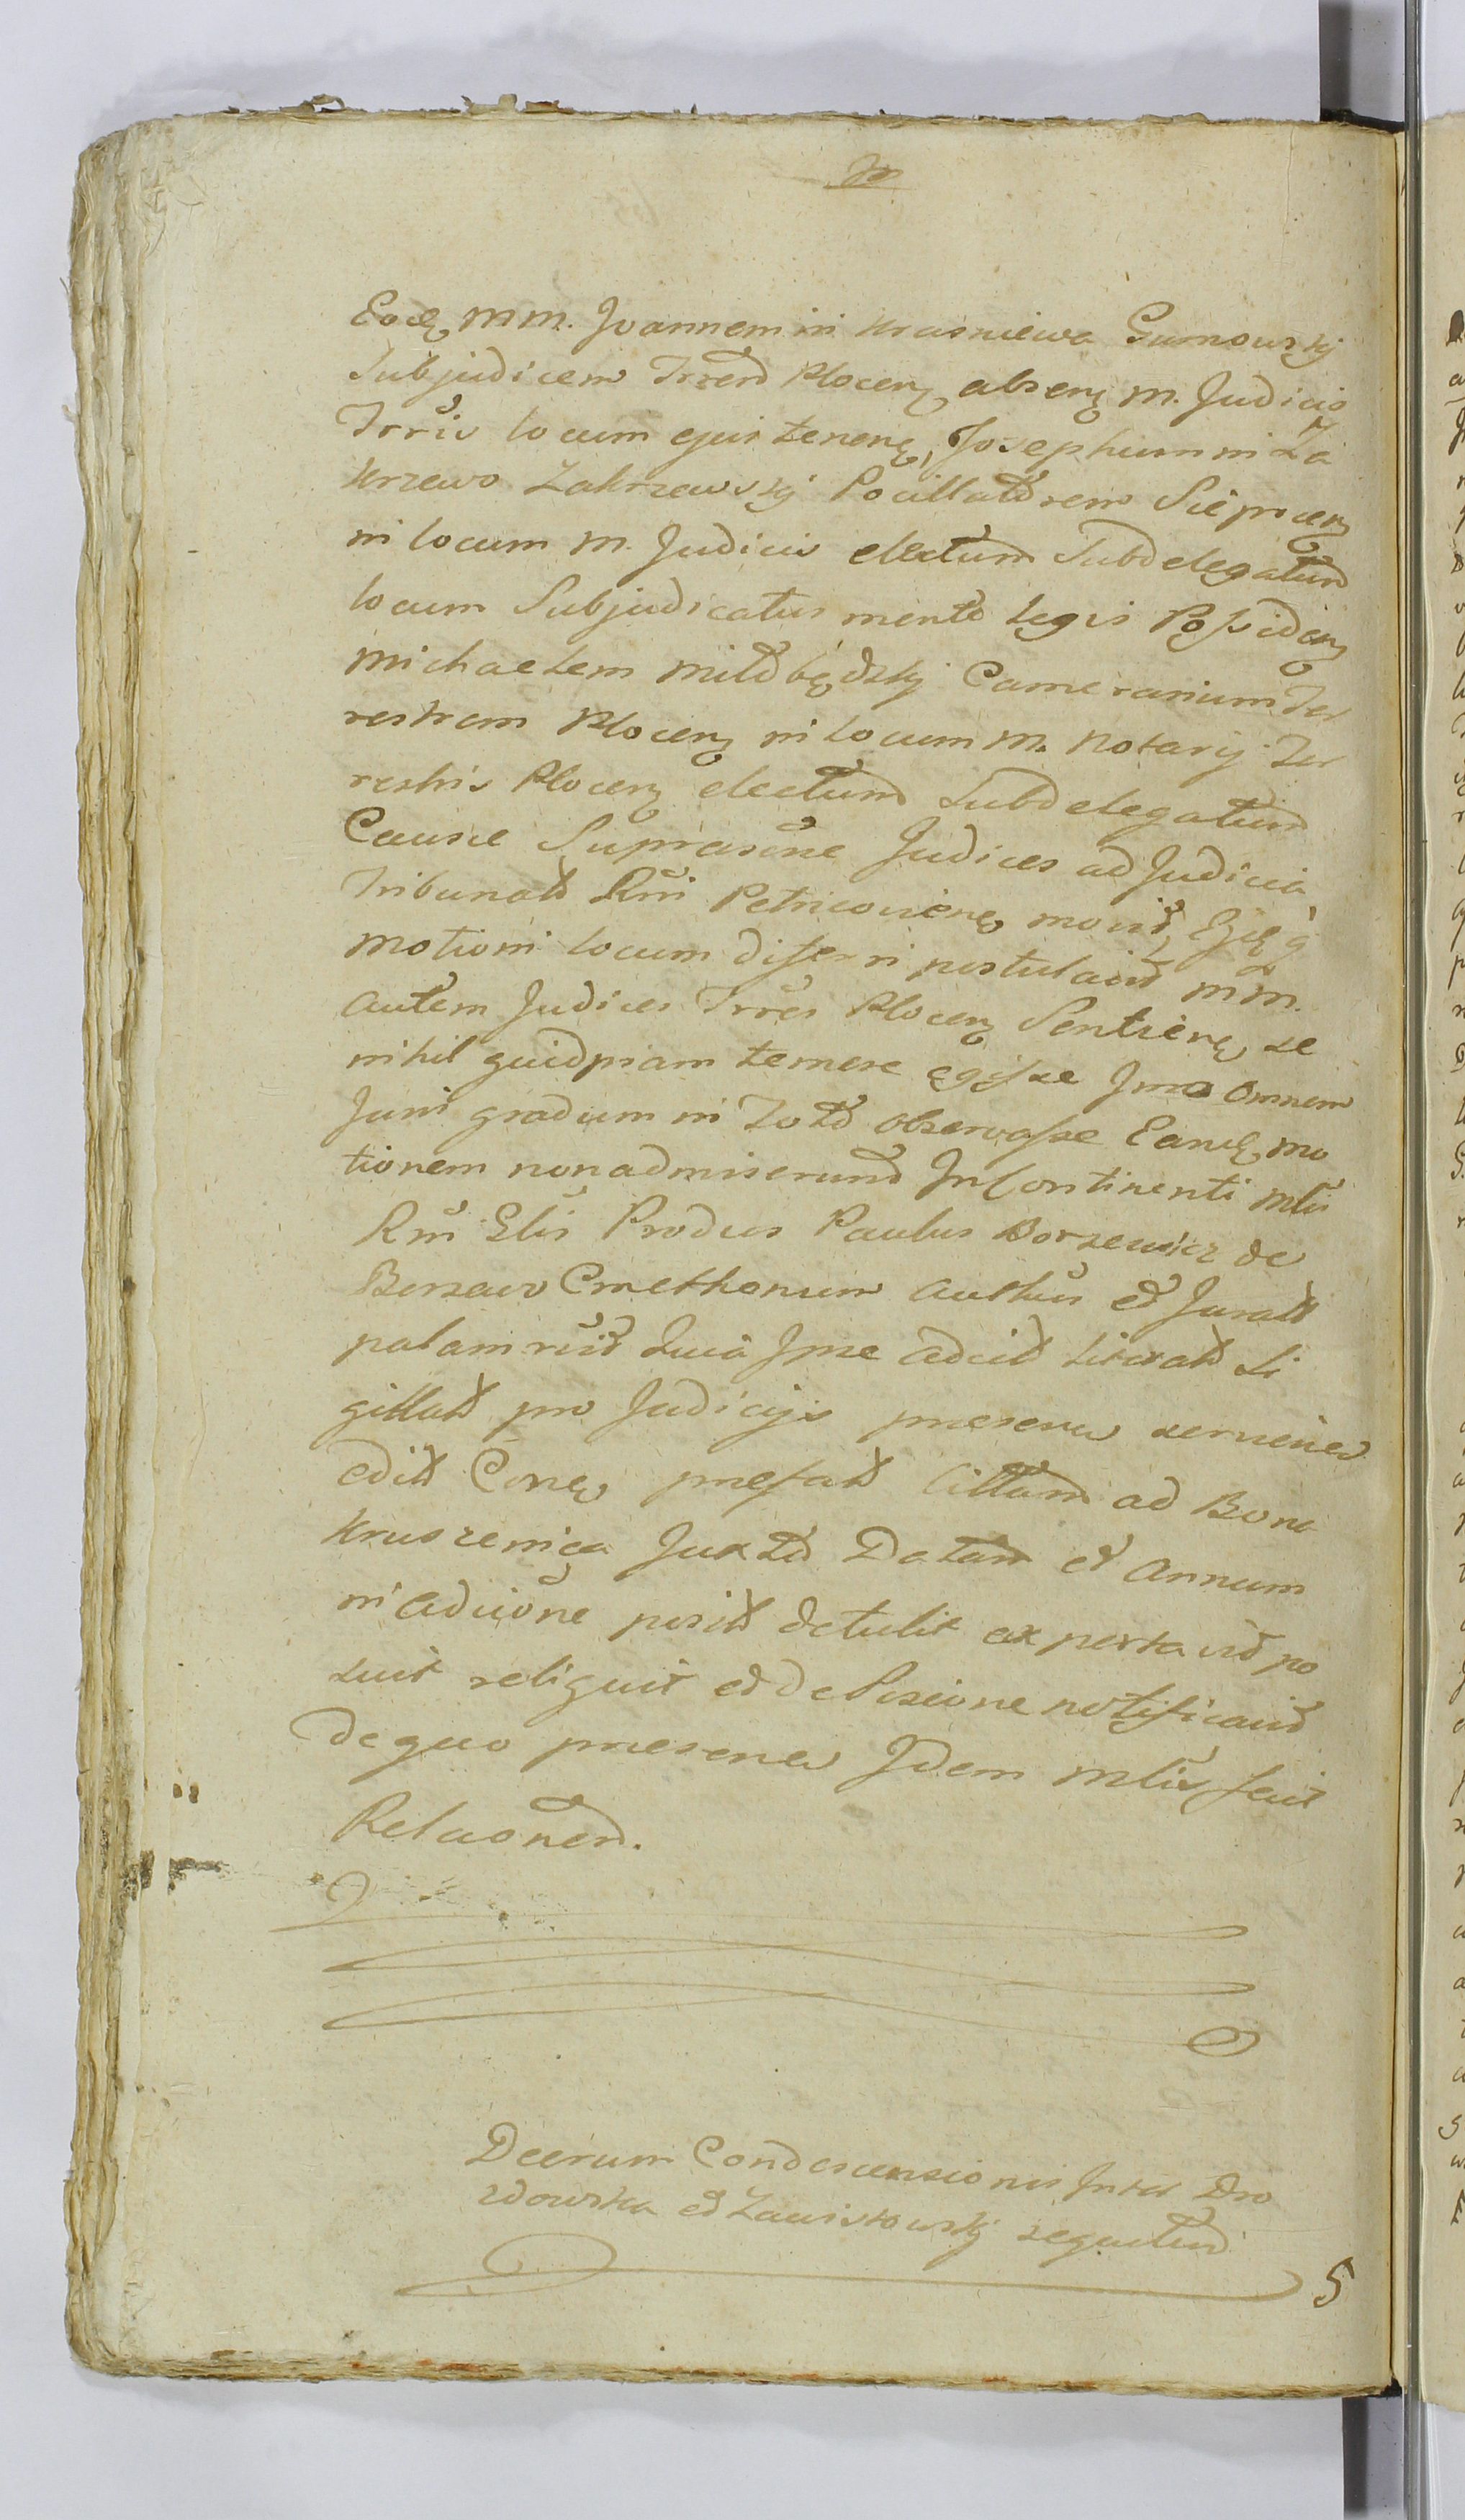 Eosdẽ MM. Joannem in Krasniewa Gumowskj
Subjudicem Trrem Plocenẽ absenẽ M. Judicis
Trris locum ejus tenenẽ, Josephum in Za
krzewo Zakrzewskj Pocillatorem Sieprcenẽ
in locum M. Judicis electum Subdelegatum
locum Subjudicatus mento legis Possidenẽ
Michaelem Miłobędzkj Camerarium Ter
restrem Plocenẽ in locum M. Notarij Ter
restris Plocenẽ electum Subdelegatum
Causæ Suprascne Judices ad Judicia
Tribunalis Rni Petricovienẽ movit,
motioni locum differri postulavit MM.
autem Judices Trres Plocenẽ Sentienẽ se
nihil quidpiam temere egisse Jmo omnem
Juris gradum in Toto observasse Eandẽ mo
tionem non admiserunt Jn Continenti Mlis
Rni Glis Produs Paulus Borzewicz de
Borzewo Cmethonum authus et Juratus
palam rcit Quia Jpse adcit literat Si
gillat pro Judicijs præsen servien
edit Conẽ præfat Cittam ad Bona
Kruszenica Juxta Datam et Annum
in adcione posit detulit ex porta vit po
suit reliquit et de Posicione notificavit
de quo præsen Jdem Mlis fecit
Relaonem.
Dcerum Condescensionis Jnter Dro
zdowska et Zawistowskj sequitur
5